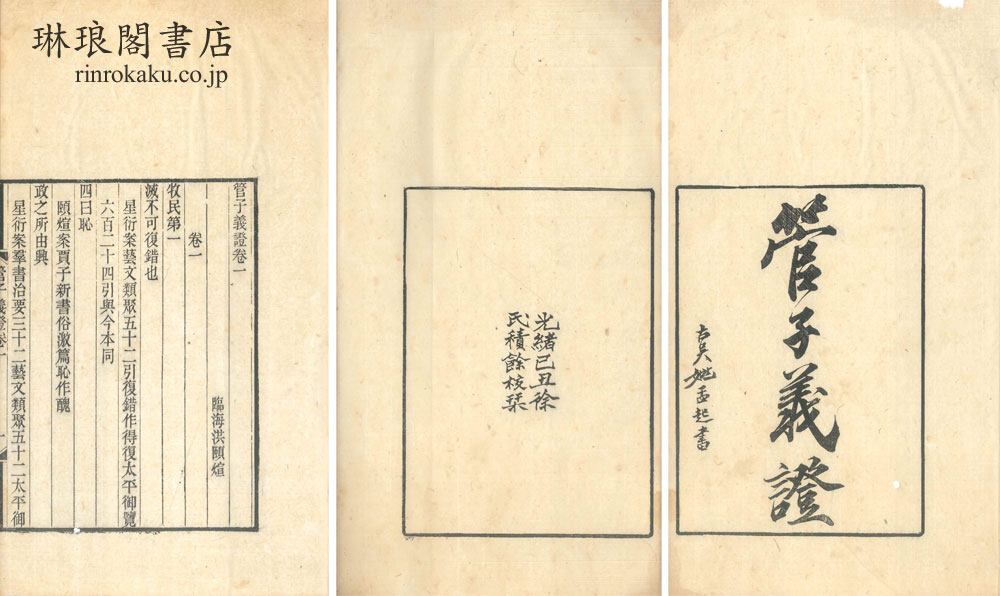 琳琅閣書店
rinrokaku.co.jp
管子義證
古吳姚孟起書
光緒己丑徐
氏積餘校栞
管子義證卷一
臨海洪頤煊
卷一
牧民第一
滅不可復錯也
星衍案藝文類聚五十二引復錯作得復太平御覽
六百二十四引與今本同
四曰恥
頤煊案賈子新書俗激篇恥作醜
政之所由興
星衍案羣書治要三十二藝文類聚五十二太平御
管子義證卷一